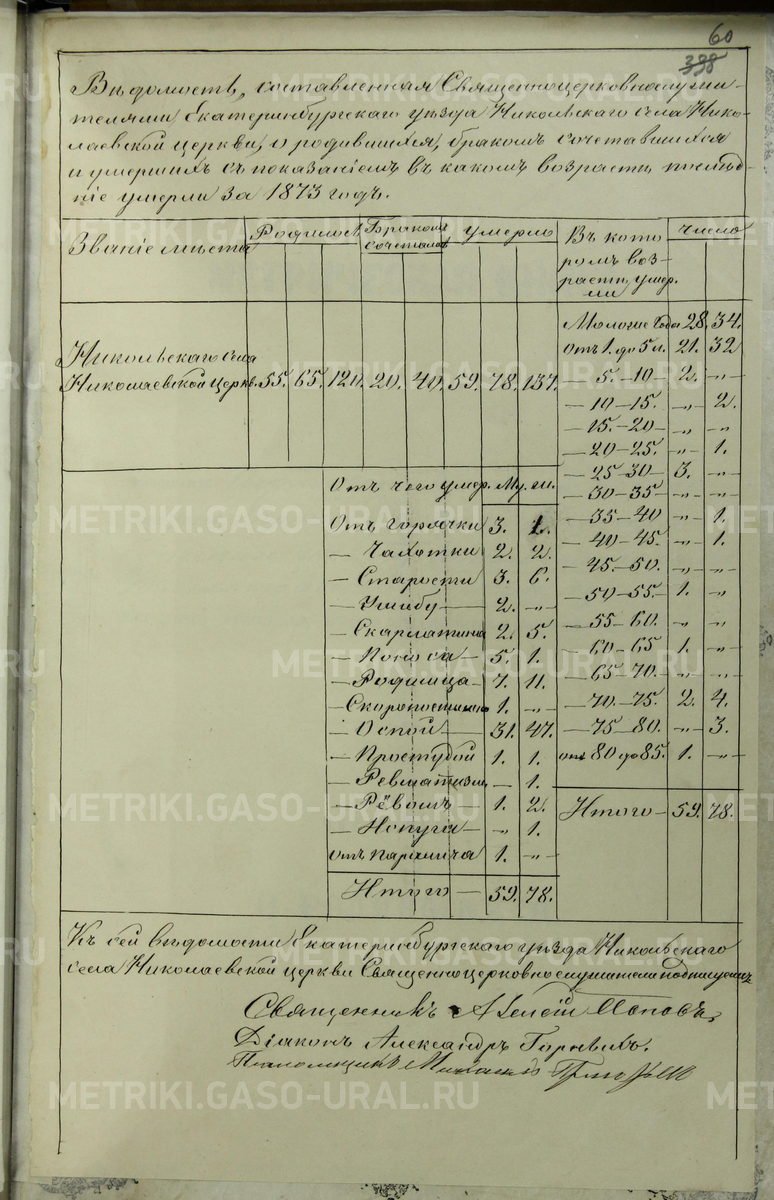 60
398
Вѣдомость, составленная Священноцерковнослужи-
телями Екатеринбургскаго уѣзда Никольскаго села Нико-
лаевской церкви, о родившихся, бракомъ сочетавшихся
и умершихъ съ показаніемъ въ какомъ возрастѣ послѣд-
ніе умерли за 1873 годъ.
Званіе мѣста Родилось Бракомъ сочеталось Умерло Въ кото ромъ воз- растѣ умер. ли Число
Никольскаго Села
Николаевской церкв. 55. 65. 120. 20. 40. 59. 78. 137.
Моложе года 28. 34.
Отъ 1. до 5 л. 21. 32
— 5. -10 — 2. -„-
— 10 —15. -„- 2.
— 15. —20 — -„- -„-
— 20 —25. -„- 1.
— 25 —30 — 3. -„-
— 30 —35 — -„- -„-
— 35 —40 -„- 1.
— 40 —45. -„- 1.
— 45. —50. -„- -„-
— 50 —55. 1. -„-
— 55 —60. -„- -„-
— 60 —65 1. -„-
— 65 —70. -„- -„-
— 70. —75. 2. 4.
— 75 —80. -„- 3.
отъ 80 до 85. 1. -„-
Итого — 59. 78.
Отъ чего умер. Му. ж.
Отъ горячки 3. 1.
— Чахотки 2. 2.
— Старости 3. 6.
— Ушибу — 2. -„-
— Скарлатина 2. 5.
— Поноса — 5. 1.
— Родимца — 7. 11.
— Скоропостижно 1. -„-
— Оспой — 31. 47.
— Простудой 1. 1.
— Ревматизм. — 1.
— Рёвомъ — 1. 2.
— Испуга — „ 1.
отъ паралича 1. -„-
Итого — 59. 78.
Къ сей вѣдомости Екатеринбургскаго уѣзда Никольскаго
села Николаевской церкви Священноцерковнослужители подписуемся
Священникъ Алексій Поповъ,
Діаконъ Александръ Горныхъ.
Псаломщикъ
METRIKI.GASO-URAL.RU